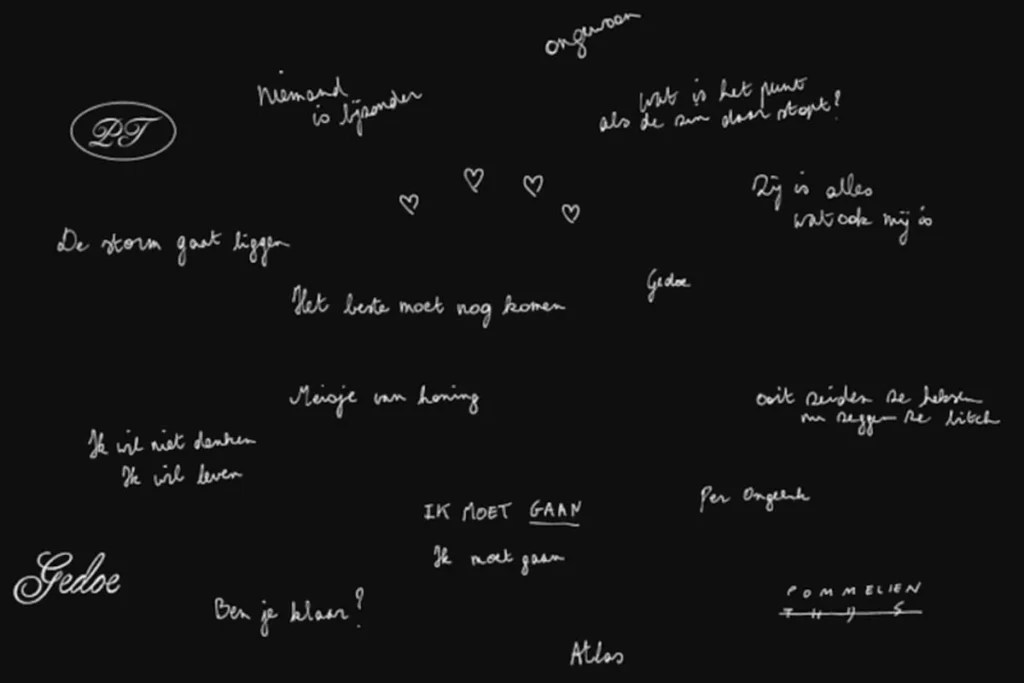 ongewoon
Niemand
is bijzonder
wat is het punt
als de zin daar stopt?
PT
Zij is alles
wat ook mij is
De storm gaat liggen
Gedoe
Het beste moet nog komen
Meisje van honing
ooit zeiden ze heksen
nu zeggen ze bitch
Ik wil niet denken
Ik wil leven
Per Ongeluk
IK MOET GAAN
Ik moet gaan
Gedoe
Ben je klaar?
POMMELIEN
THIJS
Atlas